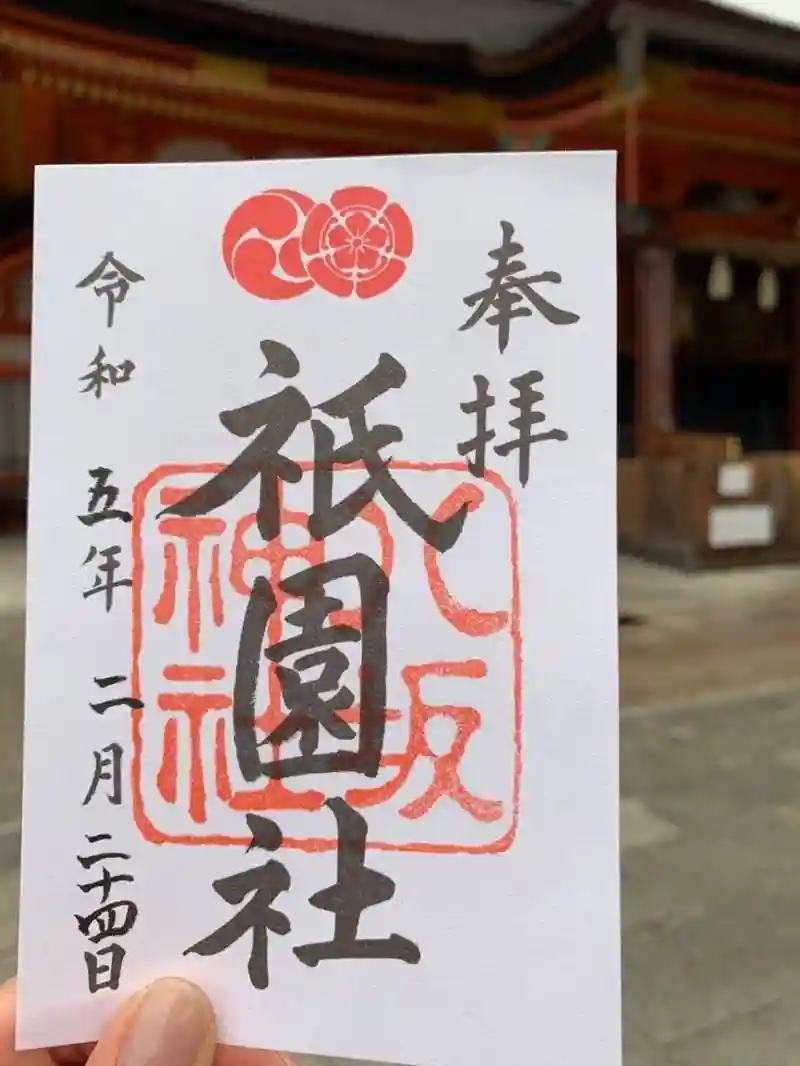 奉拝
祇園社
八坂
神社
令和五年二月二十四日